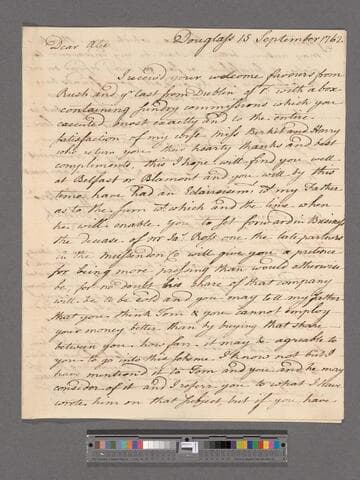 Douglass 15 September 1762.
Dear Alic
I received your welcome favours from
Rush and ye last from Dublin with a box
containing sundry commissions which you
executed most exactly and to the entire
satisfaction of my wife Miss Birket and Harry
who return you their hearty thanks and best
compliments, this I hope will find you well
at Belfast or Blamont and you will by this
time have had an Eclarsisem wt my Father
as to the sum wt which and the time when
he will enable you to set forward in Business
the decease of mr Jas Ross one the late partners
in the Mussendon Co will give you a pretence
for being more pressing than would otherwise
be, for no doubt his share of that company
will be to be sold and you may tell my father
that you think Tom & you cannot employ
your money better than by buying that share
between you. how far it may be agreeable to
you to go into this scheme I know not but I
have mentiond it to Tom and you and he may
consider of it and I referr you to what I have
wrote him on that subject but if you have